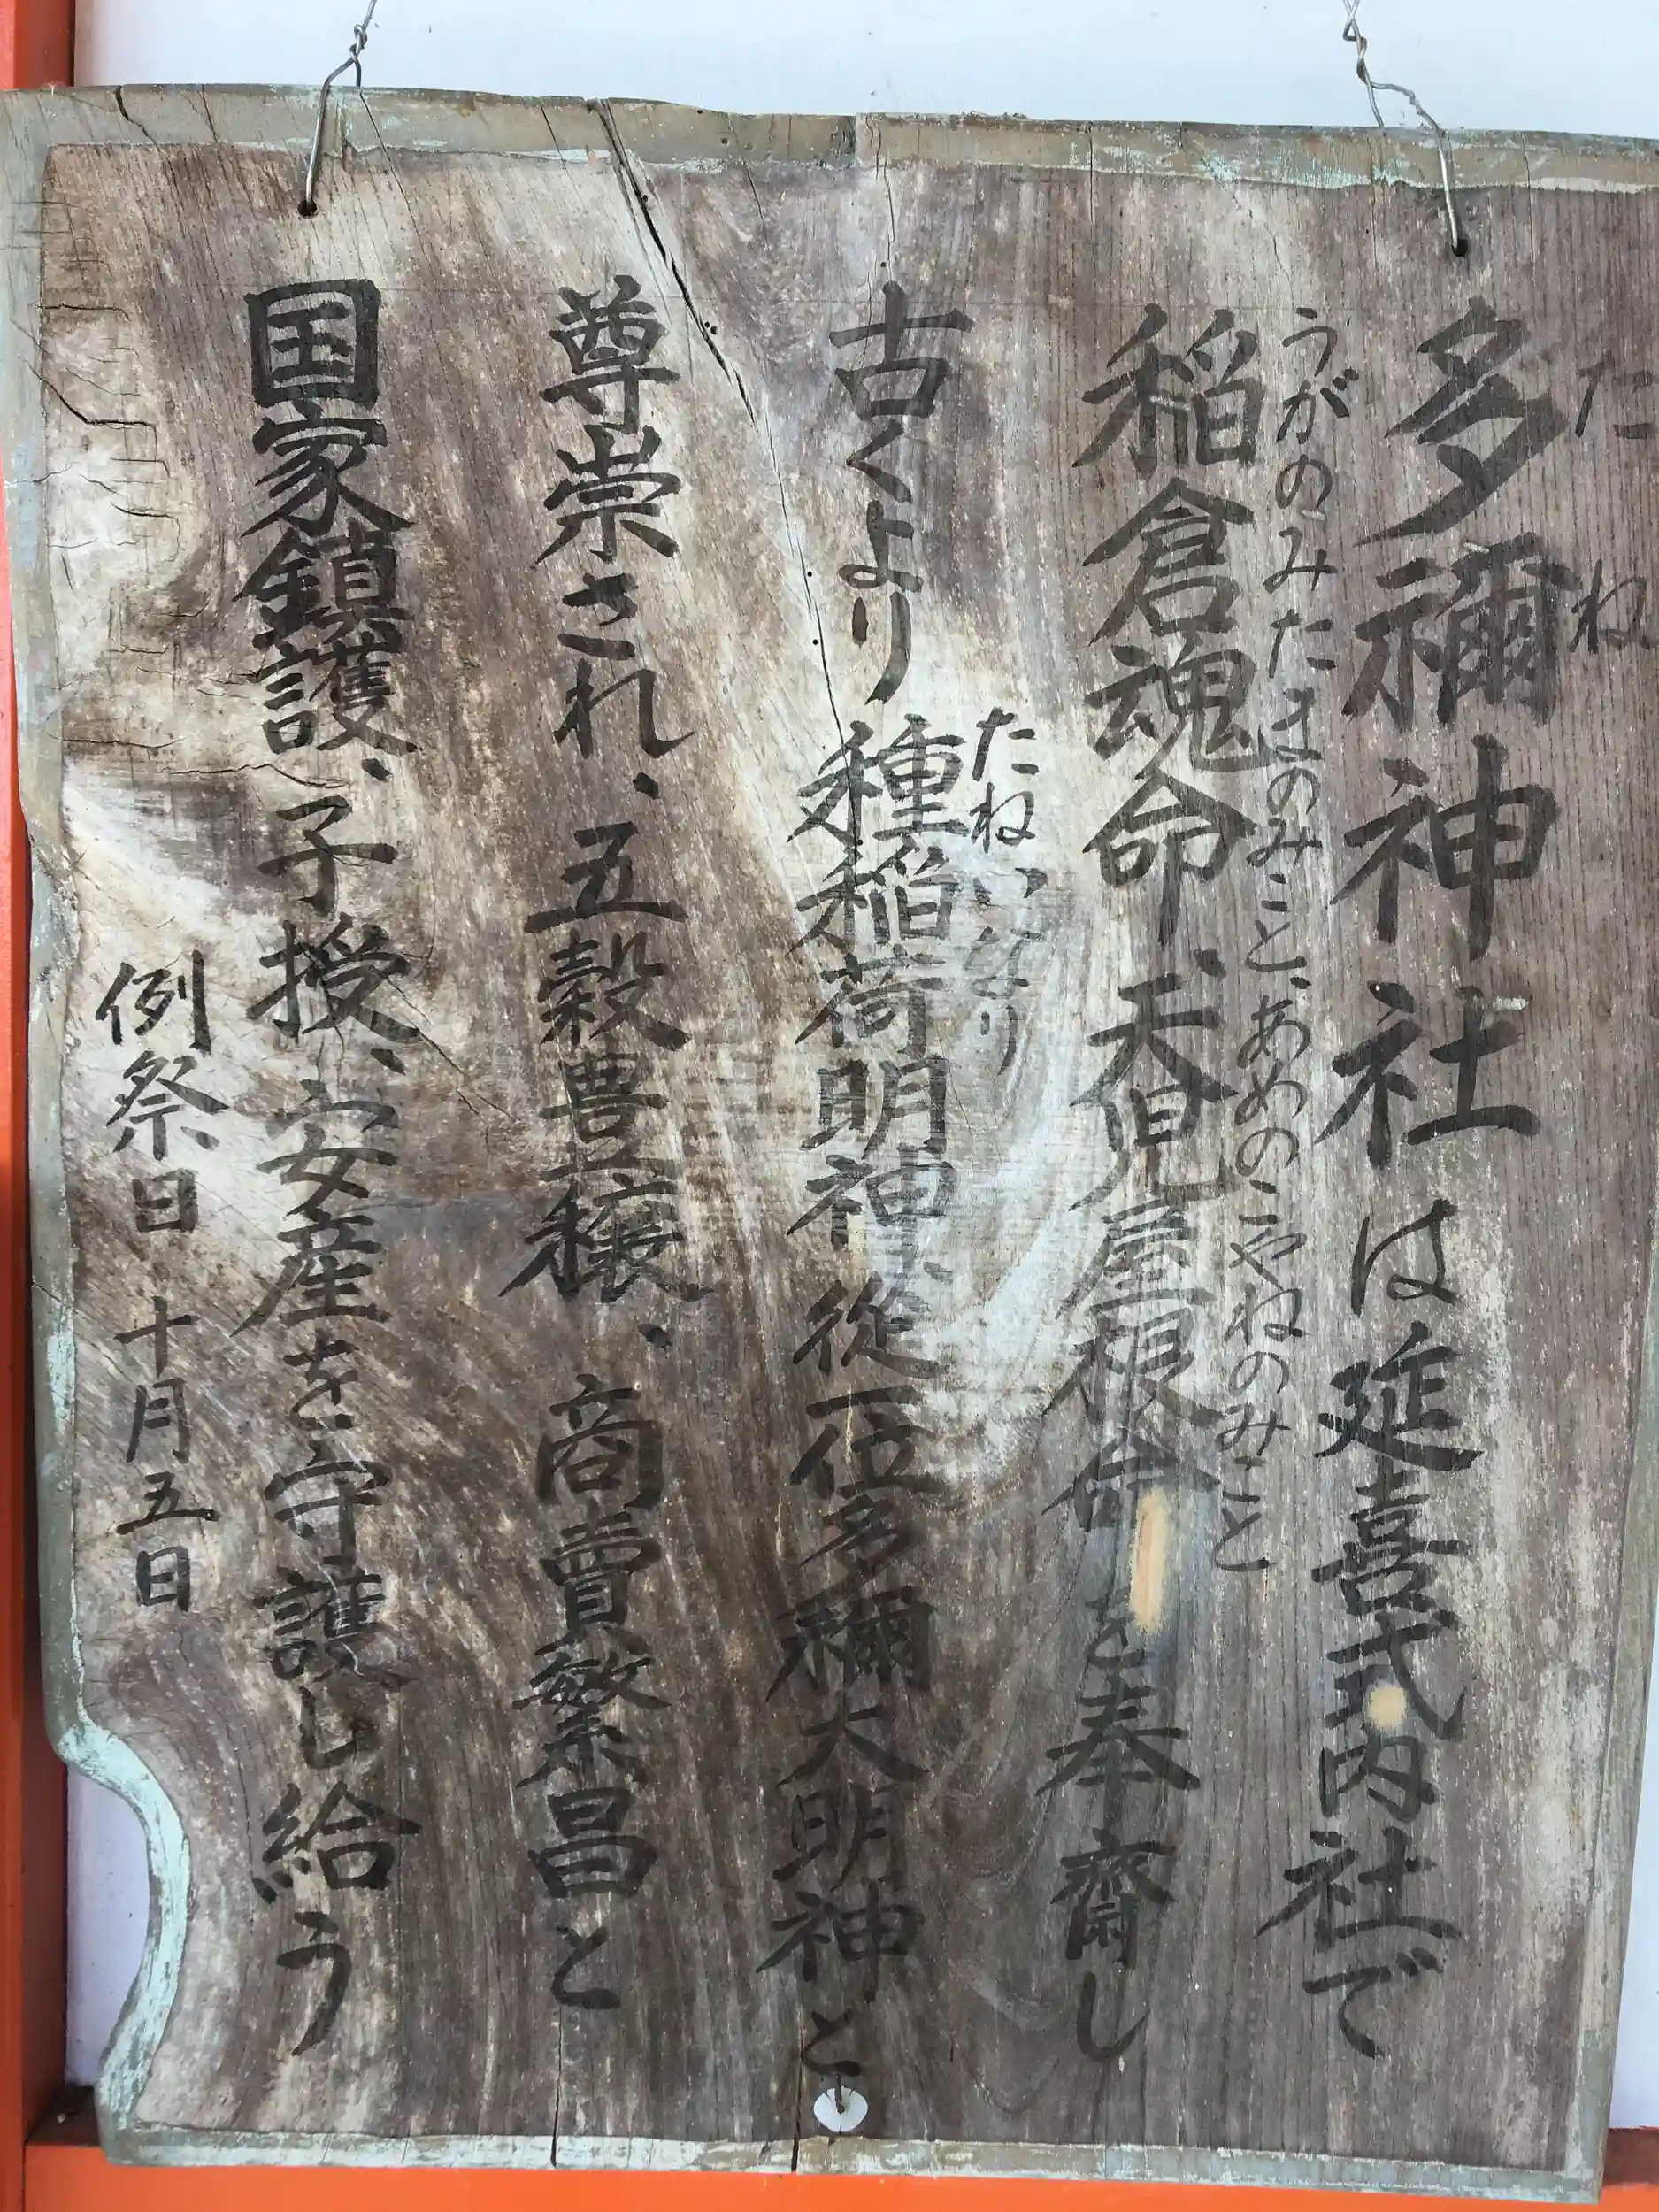 たね
多禰神社は延喜式内社で
うがのみたまのみこと、あめのこやねのみこと
稲倉魂命、天児屋根命を奉齋し
たねいなり
古くより種稲荷明神、従一位多禰大明神と
尊崇され、五穀豊穣、商賣繁昌と
国家鎮護、子授、安産を守護し給う
例祭日 十月五日